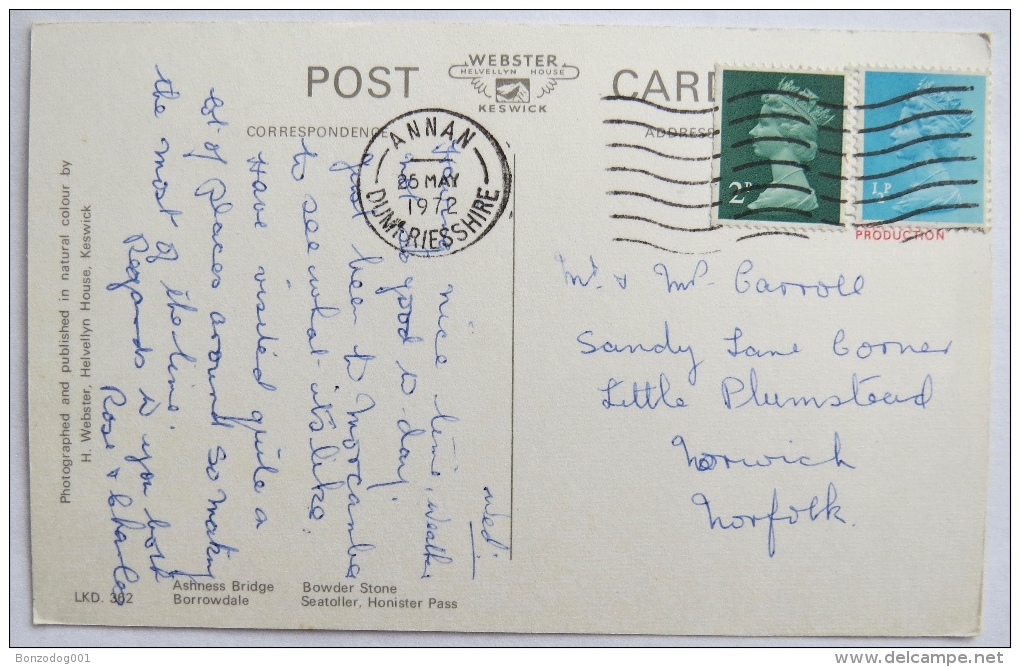 POST CARD
WEBSTER
HELVELLYN HOUSE
KESWICK
CORRESPONDENCE
ADDRESS
ANNAN
25 MAY
1972
DUMFRIESSHIRE
2P
½P
PRODUCTION
Wed'
nice time, weather
not good to day.
just been to Morcambe
to see what its like.
Have visited quite a
lot of places around so making
the most of the time.
Regards to you both
Rose & Charles
Mr. & Mrs. Carroll
Sandy Lane Corner
Little Plumstead
Norwich
Norfolk.
Photographed and published in natural colour by
H. Webster, Helvellyn House, Keswick
LKD. 302
Ashness Bridge Bowder Stone
Borrowdale Seatoller, Honister Pass
Bonzodog001
delcampe.net